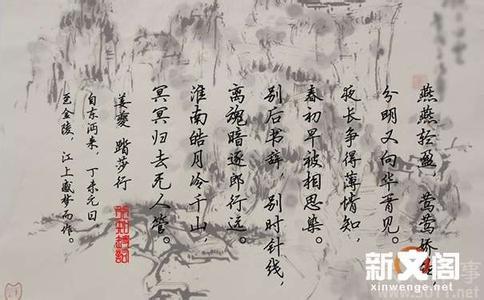 燕燕轻盈，莺莺娇软
分明又向华胥见。
夜长争得薄情知，
春初早被相思染。
别后书辞，别时针线，
离魂暗逐郎行远。
淮南皓月冷千山，
冥冥归去无人管。
姜夔 踏莎行
自东沔来，丁未元日
至金陵，江上感梦而作。
新文阁
xinwenge.net